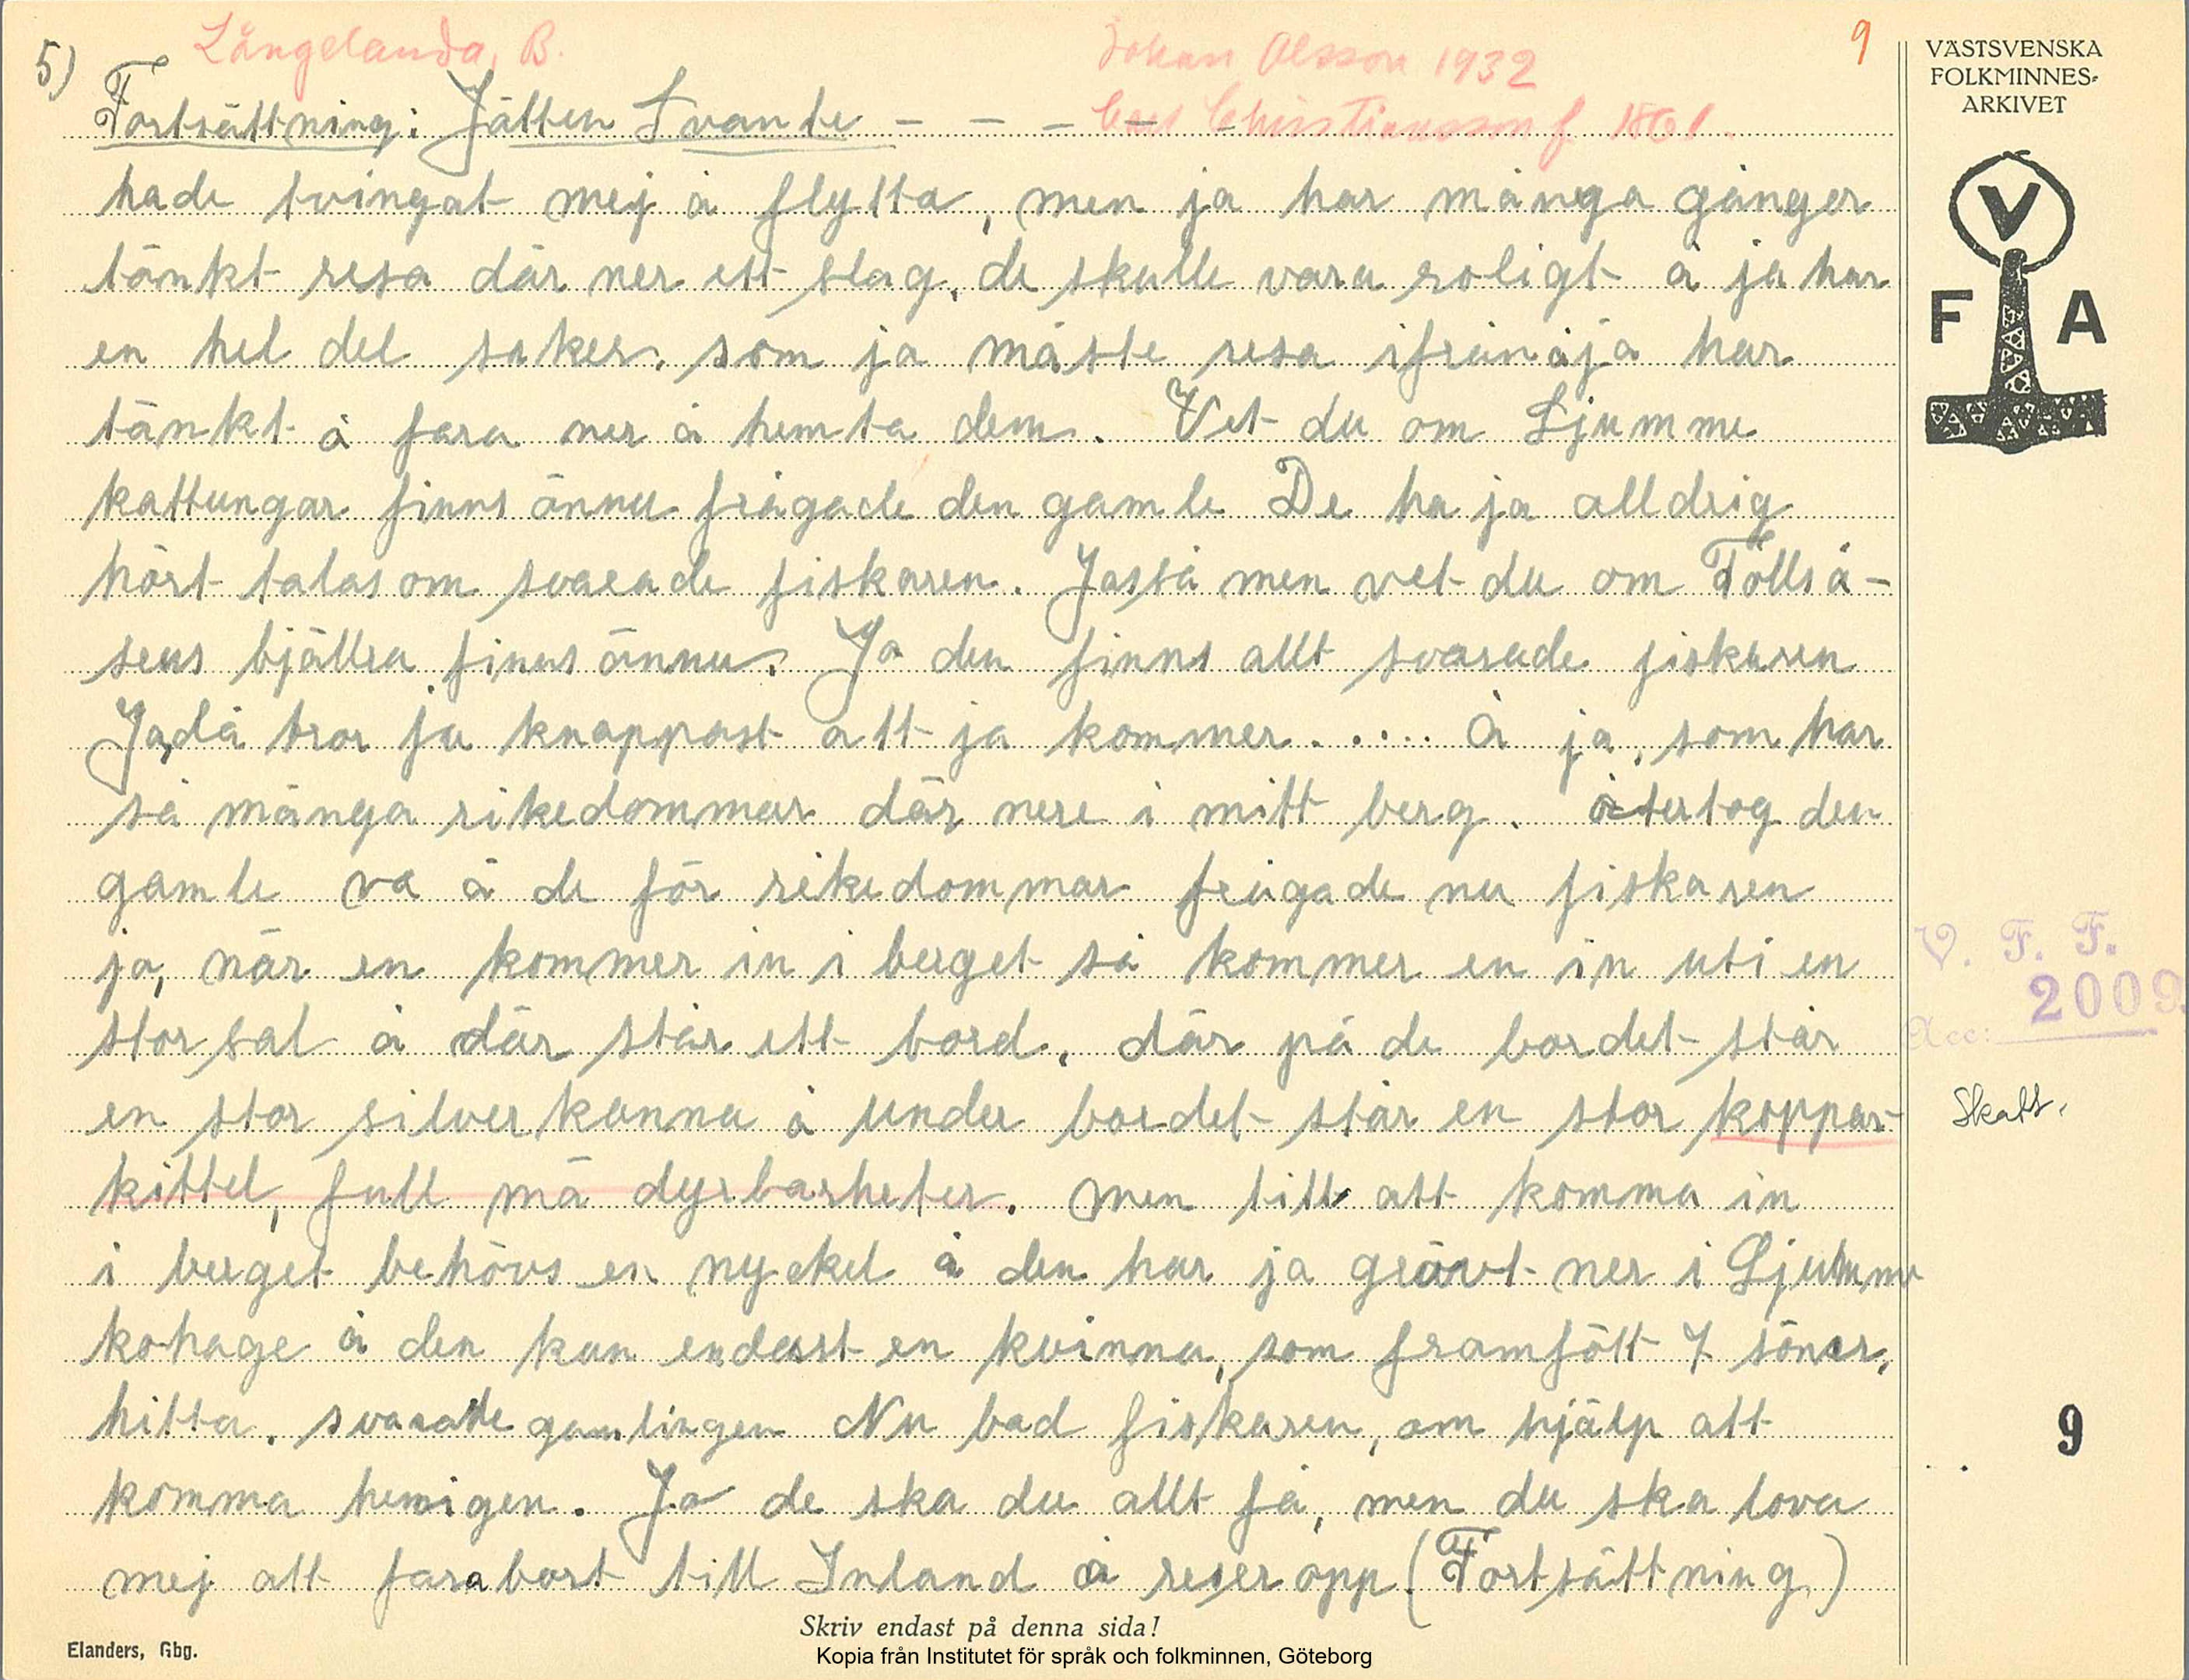 5) Långelanda, B. Johan Olsson 1932 9
Carl Christiansson f. 1861.
Fortsättning: Jätten Svante – – – – –
hade tvingat mej å flytta, men ja har många gånger
tänkt resa där ner ett slag, de skulle vara roligt å ja har
en hel del saker, som ja måste resa ifrån å ja har
tänkt å fara ner å hemta dem. Vet du om Ljumme
kattungar finns ännu frågade den gamle De ha ja alldrig
hört talas om svarade fiskaren. Jasså men vet du om Tollså-
sens bjällra finns ännu. Ja den finns allt svarade fiskaren
Ja, då tror ja knappast att ja kommer..... Å ja, som har
så många rikedommar där nere i mitt berg. återtog den
gamle va ä de för rikedommar frågade nu fiskaren
ja, när en kommer in i berget så kommer en in uti en
stor sal å där står ett bord, där på de bordet står
en stor silverkanna å under bordet står en stor koppar-
kittel, full mä dyrbarheter. Men till att komma in
i berget behövs en nyckel å den har ja grävt ner i Ljumme
kohage å den kan endast en kvinna, som framfött 7 söner,
hitta. svarade gamlingen Nu bad fiskaren, om hjälp att
komma hem igen. Ja de ska du allt få, men du ska lova
mej att fara bort till Inland å reser opp (Fortsättning,)
Skriv endast på denna sida!
Elanders, Gbg.
Kopia från Institutet för språk och folkminnen, Göteborg
VÄSTSVENSKA
FOLKMINNES-
ARKIVET
V
F A
V. F. F.
Acc: 2009
Skatt.
9